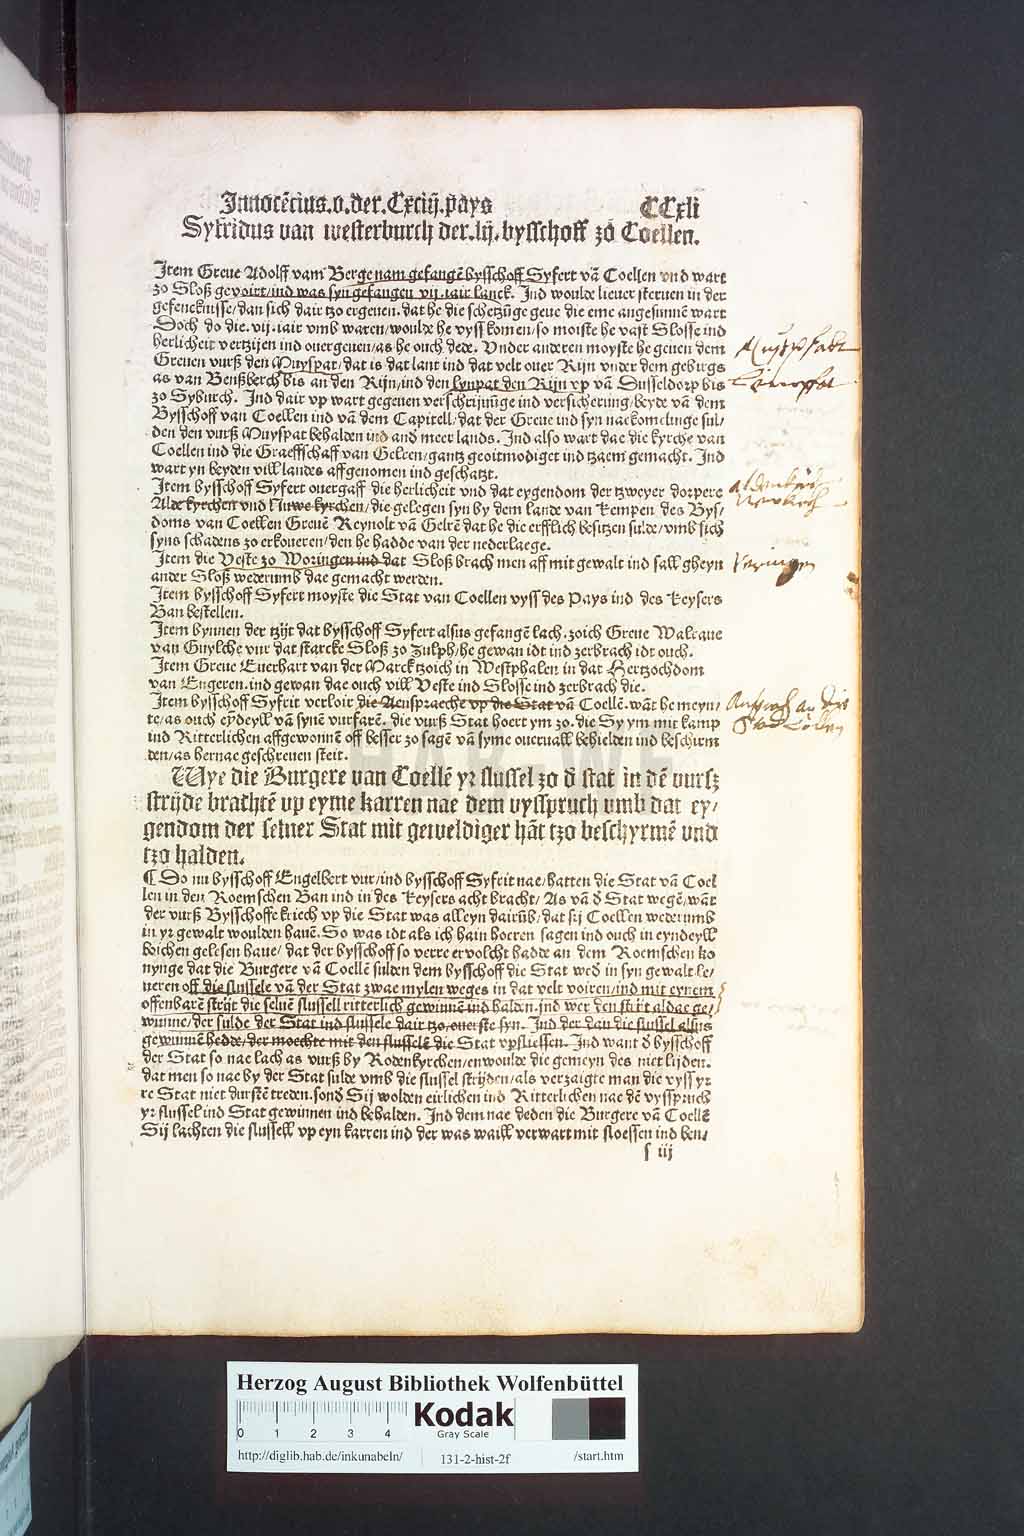 Innocẽcius.v.der.Cxciij.pays CCxli
Syfridus van westerburch der.lij.bysschoff zo Coellen.
Item Greue Adolff vam Berge nam gefangẽ bysschoff Syfert vã Coellen vnd wart
zo Sloß gevoirt/ind was syn gefangen vij.iair lanck. Ind woulde lieuer steruen in der
gefencknisse/dan sich dair tzo ergeuen.dat he die schetzũge geue die eme angesunnẽ wart
Doch do die.vij.iair vmb waren/woulde he vyss komen/so moiste he vast Slosse ind
herlicheit vertzijen ind ouergeuen/as he ouch dede. Vnder anderen moyste he geuen dem
Greuen vurß den Muyspat/dat is dat lant ind dat velt ouer Rijn vnder dem gebirgs
as van Benßberch bis an den Rijn/ind den Lynpat den Rijn vp vã Dusseldorp bis
zo Syburch. Ind dair vp wart gegeuen verschrijuũge ind versicherung/beyde vã dem
Bysschoff van Coellen ind vã dem Capittel/dat der Greue ind syn naekomelinge sul/
den den vurß Muyspat behalden ind and meer lands. Ind also wart dae die kyrche van
Coellen ind die Graeffschaff van Gelren/gantz geoitmodiget ind tzaem gemacht. Ind
wart yn beyden vill landes affgenomen ind geschatzt.
Item bysschoff Syfert ouergaff die herlicheit vnd dat eygendom der tzweyer dorpere
Alde kyrchen vnd Nuwe kyrchen/die gelegen syn by dem lande van Kempen des Bys/
doms van Coellen Greuẽ Reynolt vã Gelrẽ dat he die erfflich besitzen sulde/vmb sich
syns schadens zo erkoueren/den he hadde van der nederlaege.
Item die Veste zo Woringen ind dat Sloß brach men aff mit gewalt ind sall gheyn
ander Sloß wederumb dae gemacht werden.
Item bysschoff Syfert moyste die Stat van Coellen vyss des Pays ind des Keysers
Ban bestellen.
Item bynnen der tzijt dat bysschoff Syfert alsus gefangẽ lach.zoich Greue Walraue
van Guylche vur dat starcke Sloß zo Zulph/he gewan idt ind zerbrach idt ouch.
Item Greue Euerhart van der Marck tzoich in Westphalen in dat Hertzochdom
van Engeren.ind gewan dae ouch vill Veste ind Slosse ind zerbrach die.
Item bysschoff Syfrit verloir die Aenspraeche vp die Stat vã Coellẽ.wãt he meyn/
te/as ouch eyndeyll vã synẽ vurfarẽ. die vurß Stat hoert ym zo.die Sy ym mit kamp
ind Ritterlichen affgewonnẽ off besser zo sagẽ vã syme oueruall behielden ind beschirm
den/as hernae geschreuen steit.
Wye die Burgere van Coellẽ yr slussel zo d stat in dẽ vursz
strijde brachtẽ vp eyme karren nae dem vysspruch vmb dat ey/
gendom der seluer Stat mit geweldiger hãt tzo beschyrmẽ vnd
tzo halden.
¶ Do nu bysschoff Engelbert vur/ind bysschoff Syfrit nae/hatten die Stat vã Coel
len in den Roemschen Ban ind in des Keysers acht bracht/ As vã d Stat wegẽ/wãt
der vurß Bysschoffe kriech vp die Stat was alleyn dairũb/dat sij Coellen wederumb
in yr gewalt woulden hauẽ. So was idt als ich hain hoeren sagen ind ouch in eyndeyll
boichen gelesen haue/ dat der bysschoff so verre ervolcht hadde an dem Roemschen ko
nynge dat die Burgere vã Coellẽ sulden dem bysschoff die Stat wed in syn gewalt le/
ueren off die slussele vã der Stat zwae mylen weges in dat velt voiren/ind mit eynem
offenbarẽ strijt die seluẽ slussell ritterlich gewinnẽ ind haldẽn.ind wer den strijt aldae ge/
wunne/der sulde der Stat ind slussele dair tzo ouerste syn. Ind der dan die slussel alsus
gewunnẽ hedde/der moechte mit den slusselẽ die Stat vpsliessen. Ind want d bysschoff
der Stat so nae lach as vurß by Rodenkyrchen/enwoulde die gemeyn des niet lijden.
dat men so nae by der Stat sulde vmb die slussel strijden/als verzaigte man die vyss yr
re Stat niet durstẽ treden.sond Sij wolden eirlichen ind Ritterlichen nae dẽ vysspruch
yr slussel ind Stat gewinnen ind behalden. Ind dem nae deden die Burgere vã Coellẽ
Sij lachten die slussell vp eyn karren ind der was waill verwart mit sloessen ind ben/
s iij
Muyspfadt
Linpfat
Aldenkirch
Newkirch
Woringen
Ansprach an die
Stad Cöllen
Herzog August Bibliothek Wolfenbüttel
0 1 2 3 4
Kodak
Gray Scale
http://diglib.hab.de/inkunabeln/ 131-2-hist-2f /start.htm